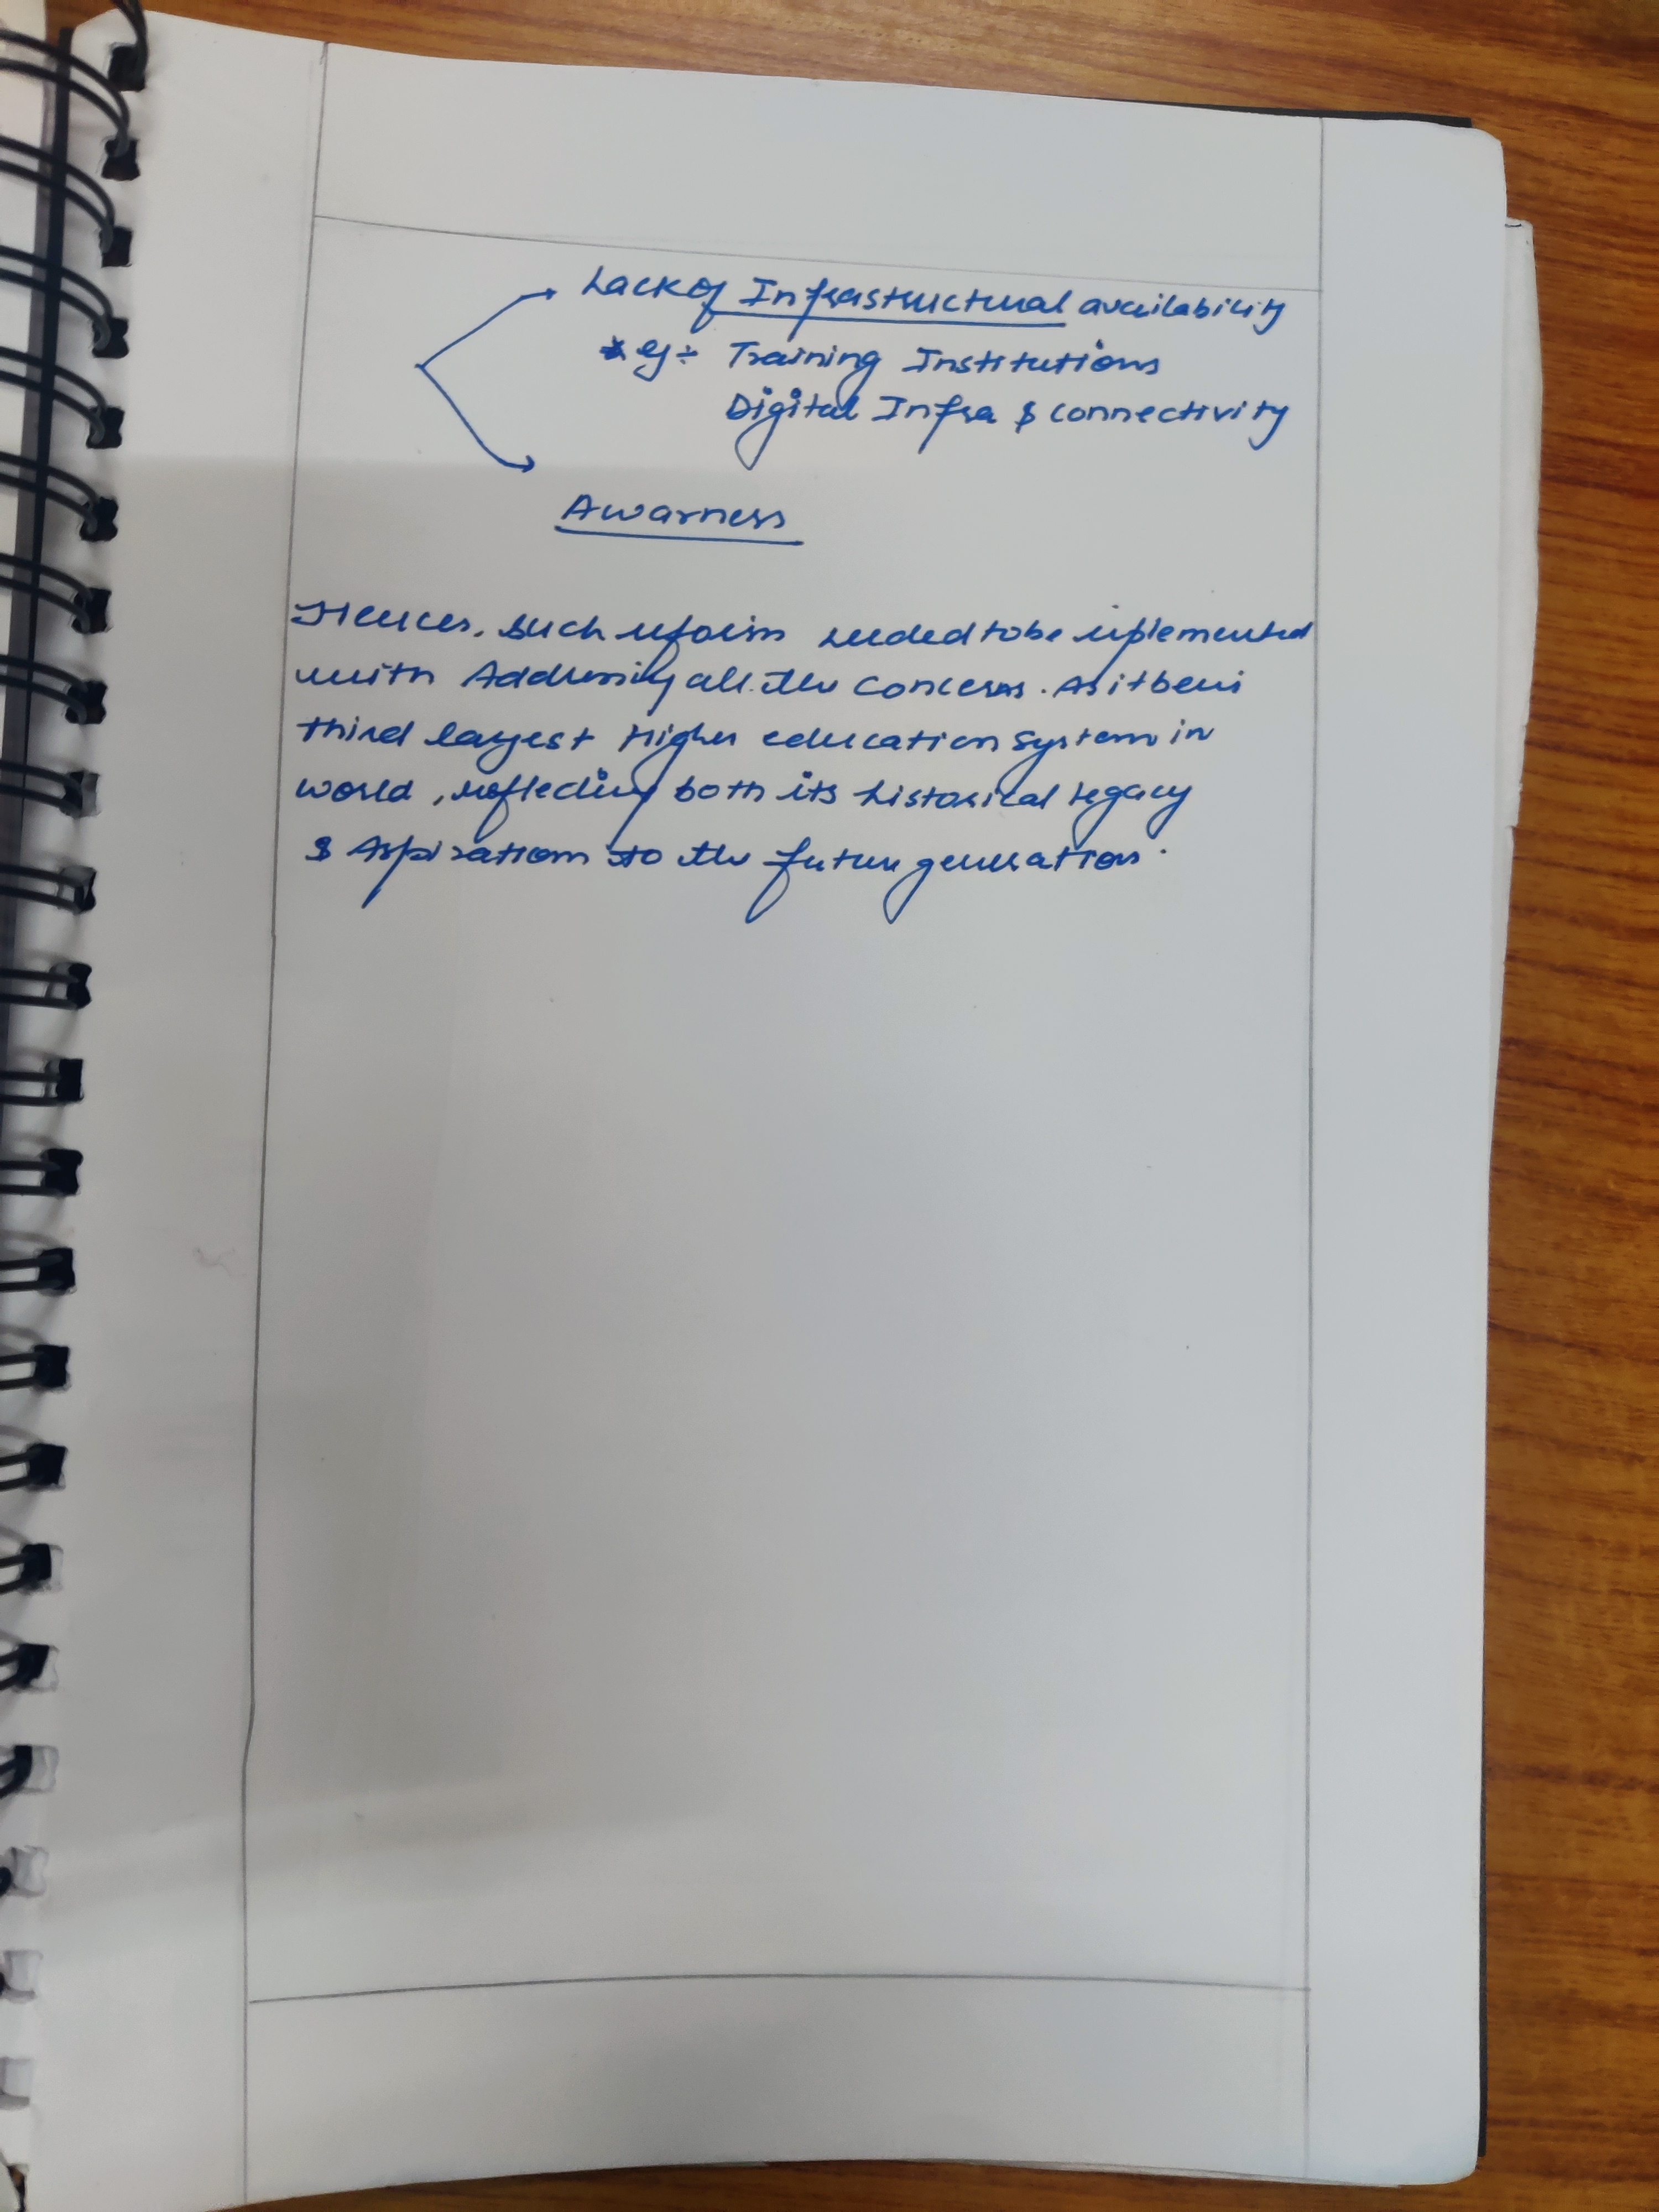 Lack of Infrastructural availability
eg:- Training Institutions
Digital Infra & connectivity
Awarness
Hences, such reform needed to be implemented
with Addressing all the concerns. As it being
third largest Higher education system in
world, reflecting both its historical legacy
& Aspirations to the future generations.